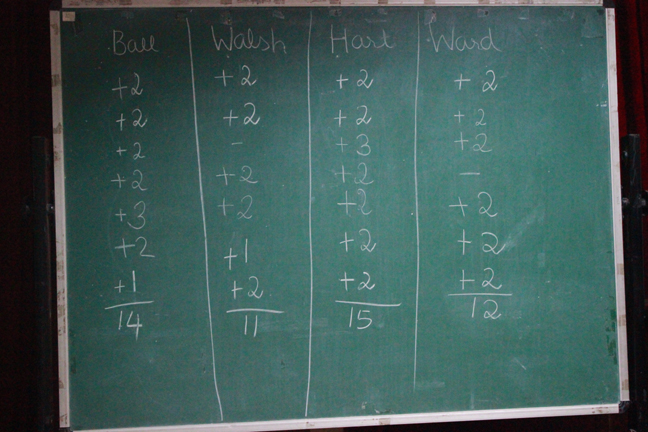 Ball Walsh Hart Ward
+2 +2 +2 +2
+2 +2 +2 +2
+2 - +3 +2
+2 +2 +2 -
+3 +2 +2 +2
+2 +1 +2 +2
+1 +2 +2 +2
14 11 15 12